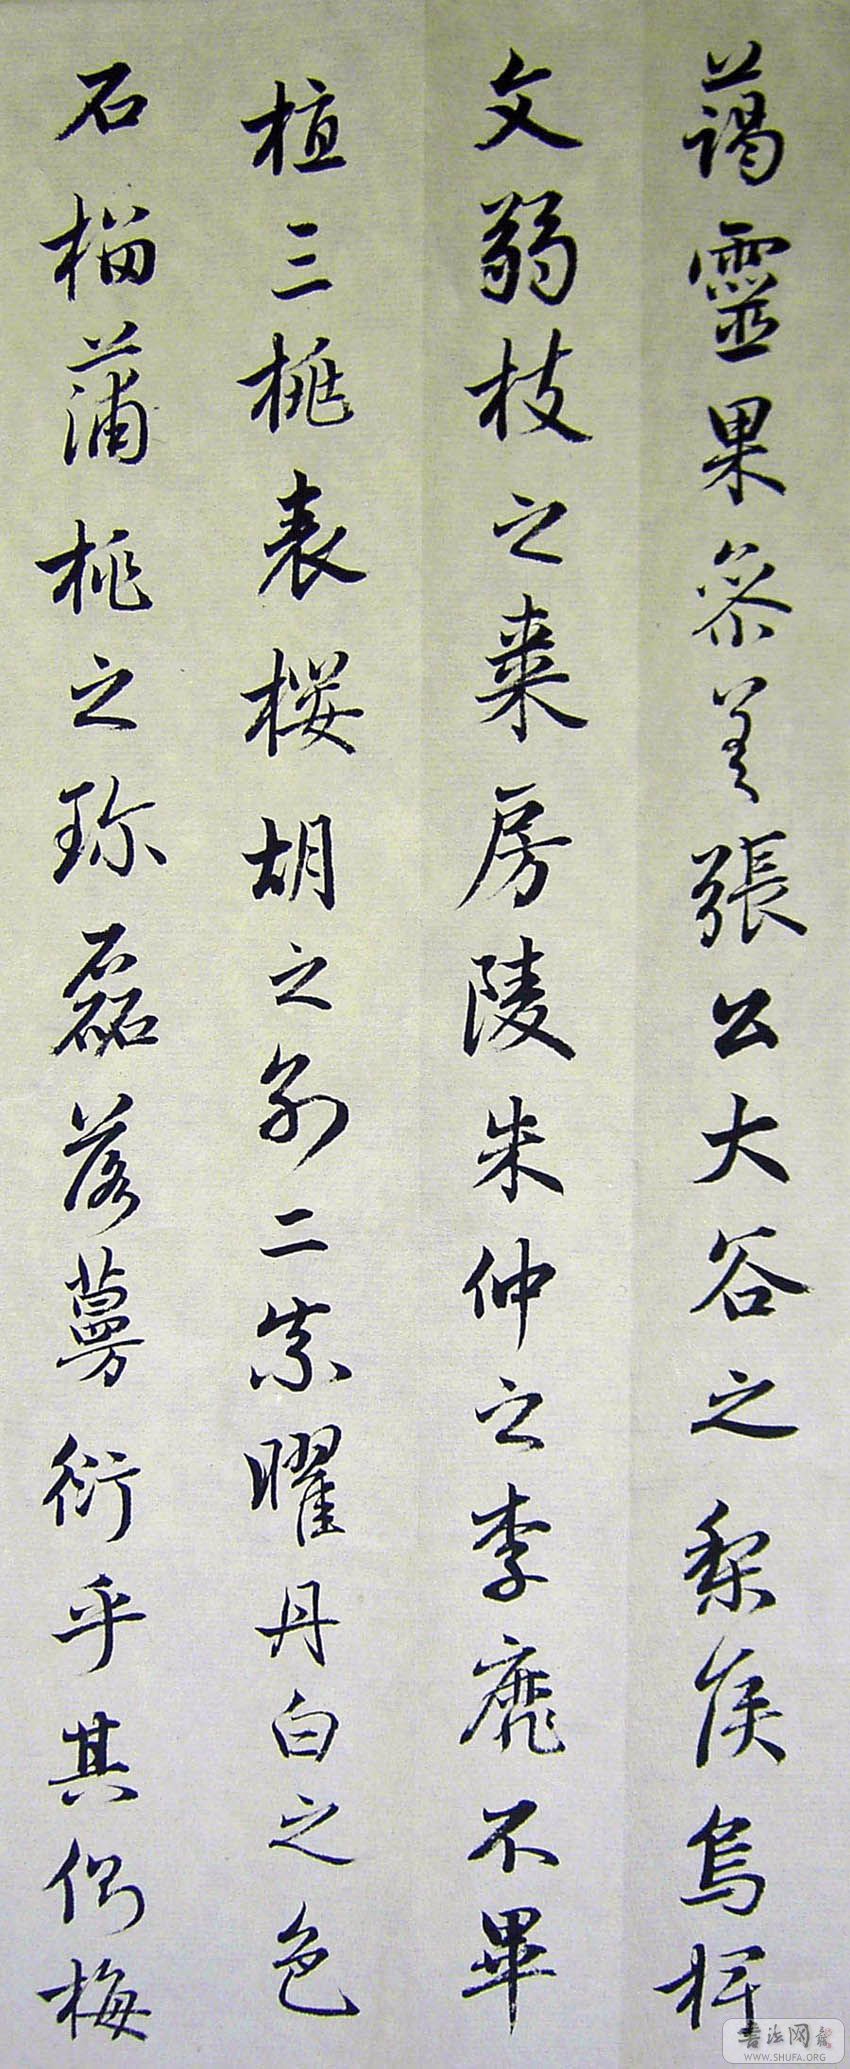 藹靈果參差張公大谷之梨侯烏椑
文弱枝之棗房陵朱仲之李靡不畢
植三桃表桜胡之別二柰曜丹白之色
石榴蒲桃之珎磊落蔓衍乎其側梅
書法网
WWW.SHUFA.ORG